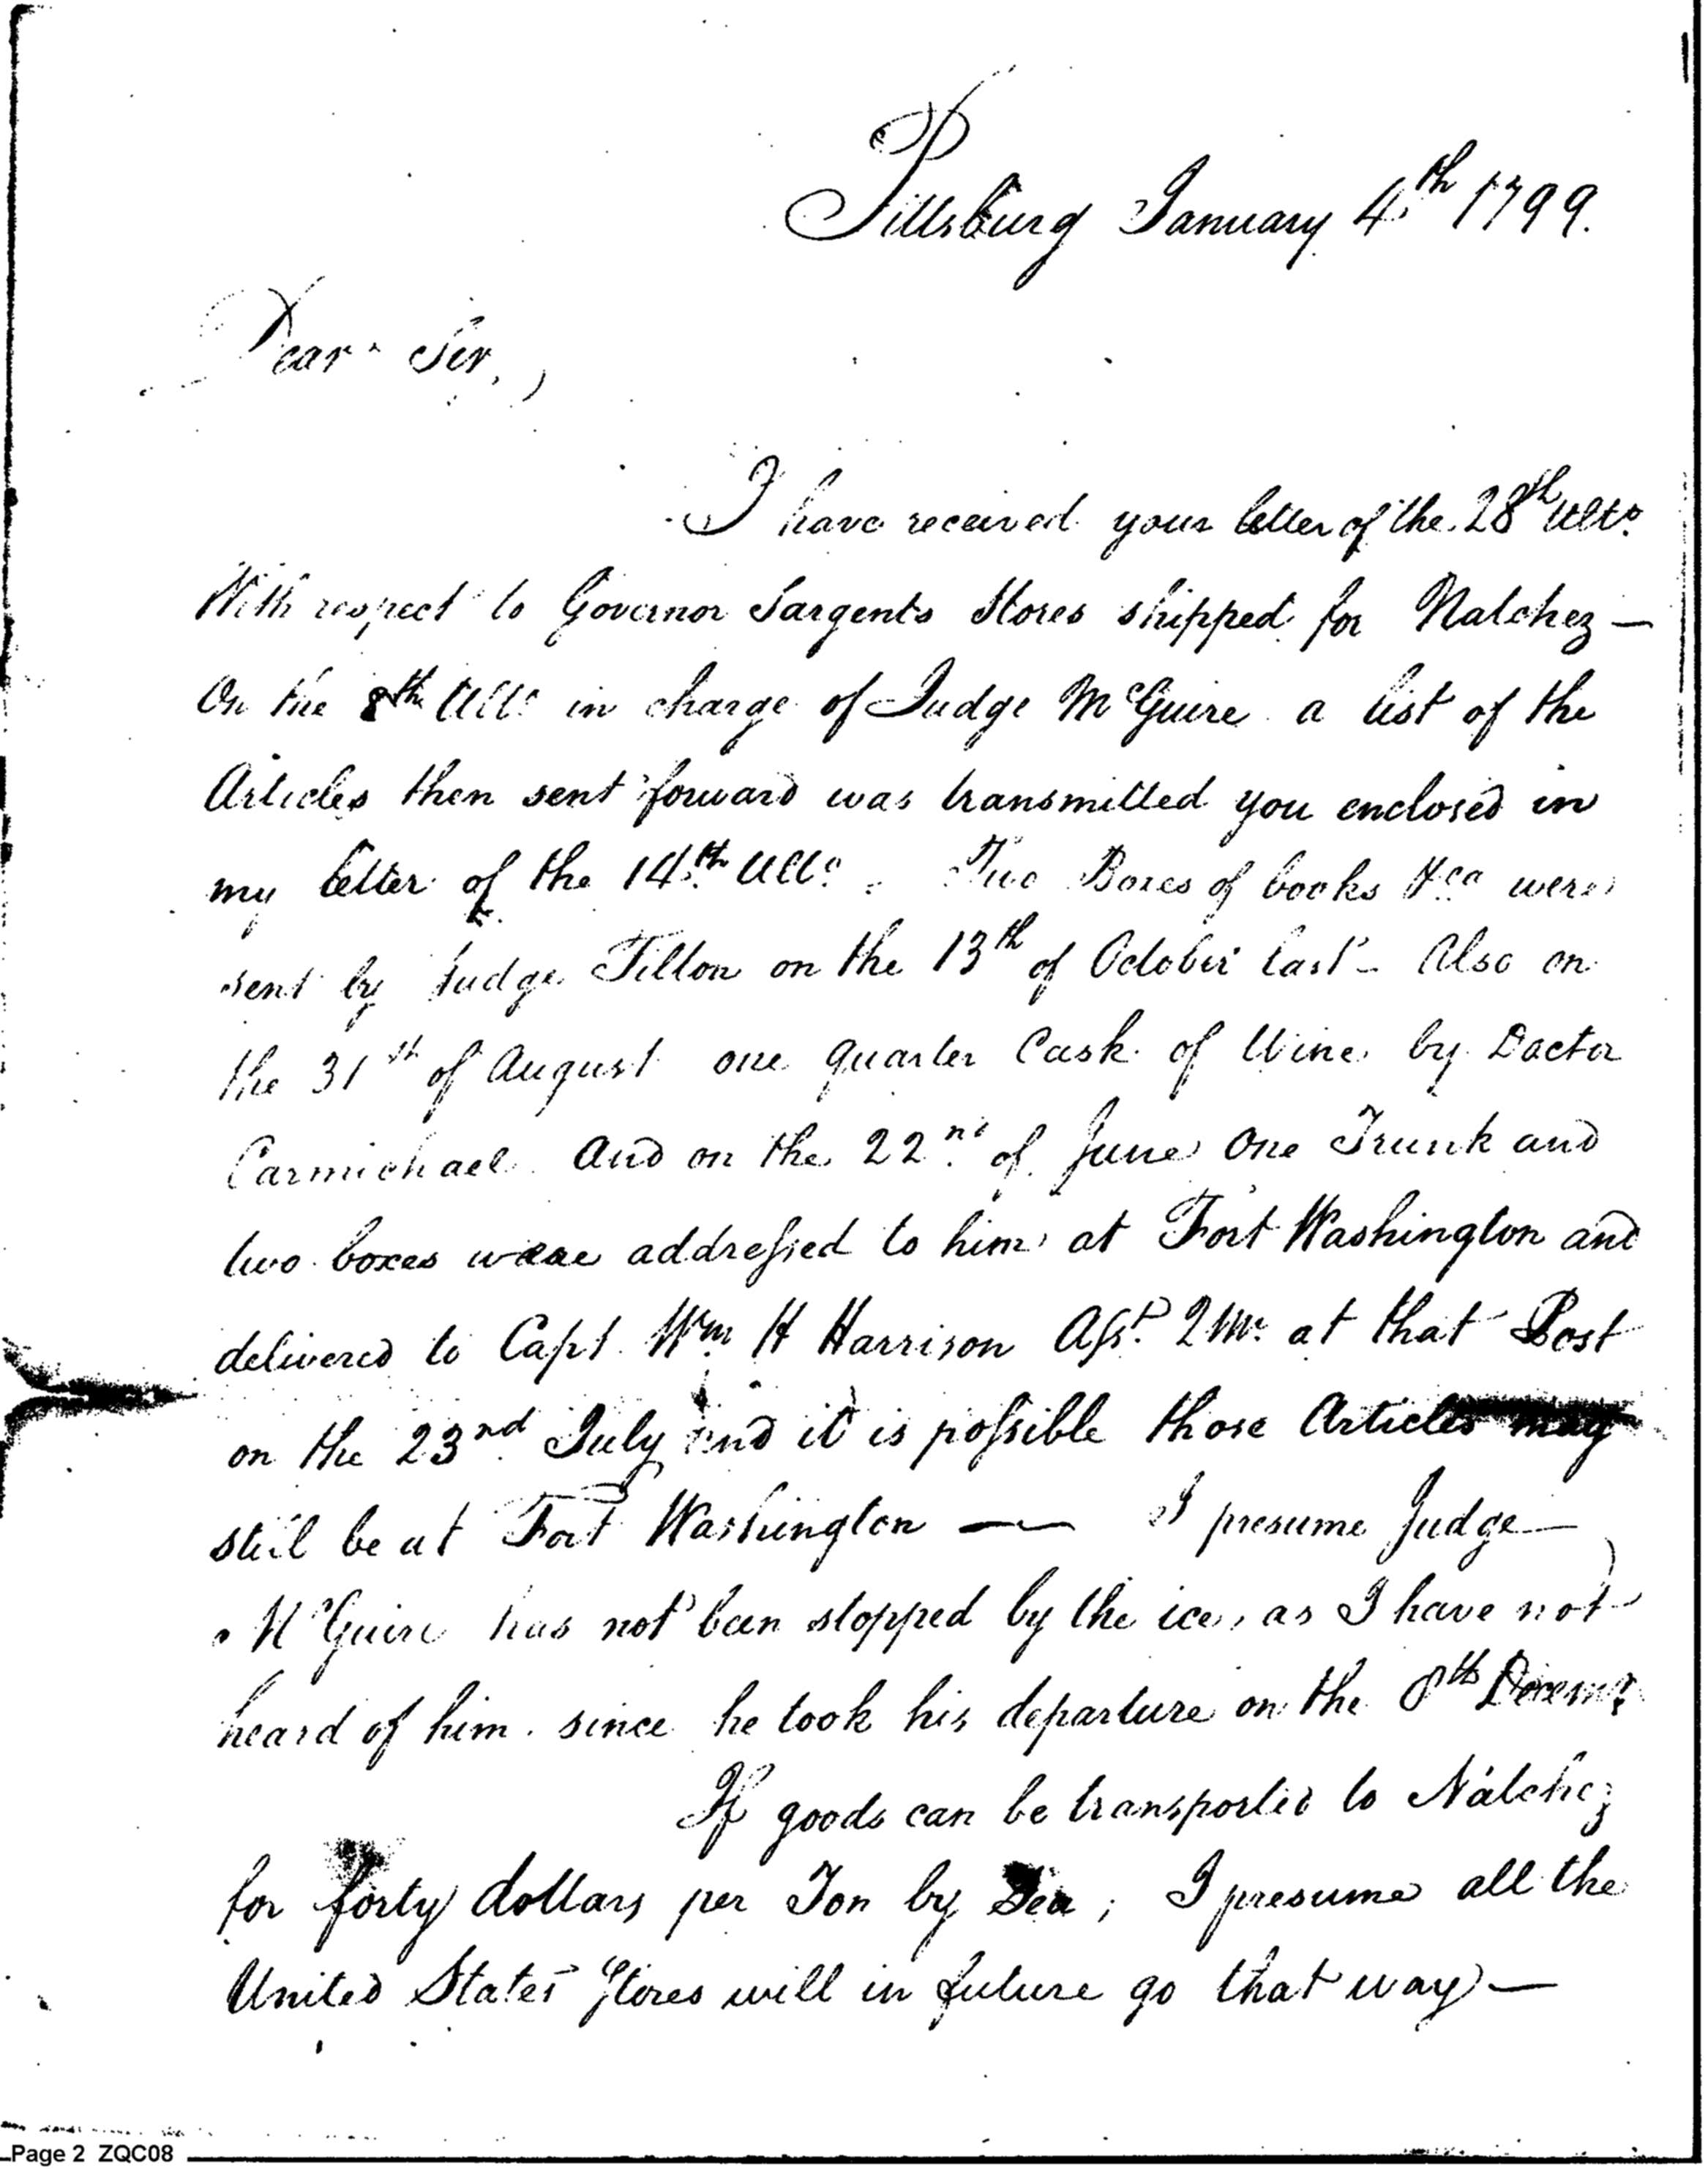 Pittsburg January 4th 1799.
Dear Sir,
I have received your letter of the 28th Ulto.
With respect to Governor Sargents Stores shipped for Natchez —
On the 8th Ulto in charge of Judge McGuire a list of the
Articles then sent forward was transmitted you enclosed in
my letter of the 14th Ulto. Two Boxes of books &ca were
sent by Judge Tilton on the 13th of October last – Also on
the 31st of August one quarter Cask of Wine by Doctor
Carmichael And on the 22nd of June One Trunk and
two boxes were addressed to him at Fort Washington and
delivered to Capt Wm H Harrison Asst. Q Mr. at that Post
on the 23rd July and it is possible those Articles may
still be at Fort Washington — I presume Judge —
McGuire has not been stopped by the ice, as I have not
heard of him since he took his departure on the 8th Decemr.
If goods can be transported to Natchez
for forty dollars per Ton by Sea; I presume all the
United States Stores will in future go that way —
Page 2 ZQC08